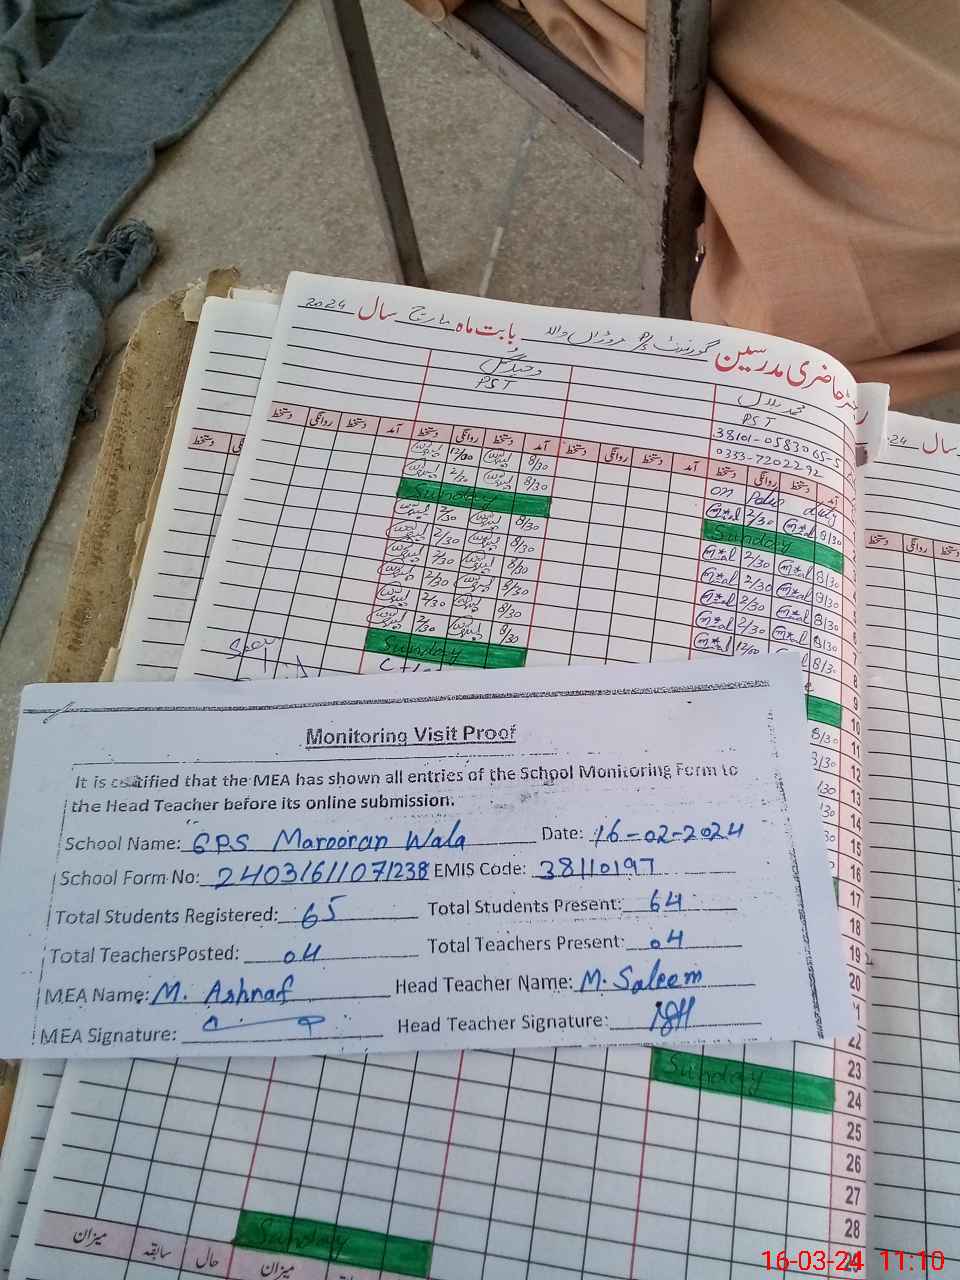 رجسٹر حاضری مدرسین گورنمنٹ P/S مروڑاں والا بابت ماہ مارچ سال 2024
PST
محمد بلال
PST
38101-0583065-5
0333-7202292
آمد دستخط روانگی دستخط آمد دستخط روانگی دستخط آمد دستخط روانگی دستخط
on Polio duty
8/30 12/30
8/30 2/30
8/30 2/30
Sunday
Sunday
8/30 2/30
8/30 2/30
8/30 2/30
8/30 2/30
8/30 2/30
8/30 2/30
8/30 2/30
8/30 2/30
8/30 2/30
8/30 2/30
8/30 12/00
Sunday
Monitoring Visit Proof
It is certified that the MEA has shown all entries of the School Monitoring Form to
the Head Teacher before its online submission.
School Name: GPS Marooran Wala Date: 16-02-2024
School Form No: 24031611071238 EMIS Code: 38110197
Total Students Registered: 65 Total Students Present: 64
Total TeachersPosted: 04 Total Teachers Present: 04
MEA Name: M. Ashraf Head Teacher Name: M. Saleem
MEA Signature: Head Teacher Signature:
8
9
10
11
12
13
14
15
16
17
18
19
20
22
23
Sunday
24
25
26
27
28
Sunday
29
میزان سابقہ حال میزان
24 سال
دستخط روانگی دستخط
16-03-24 11:10